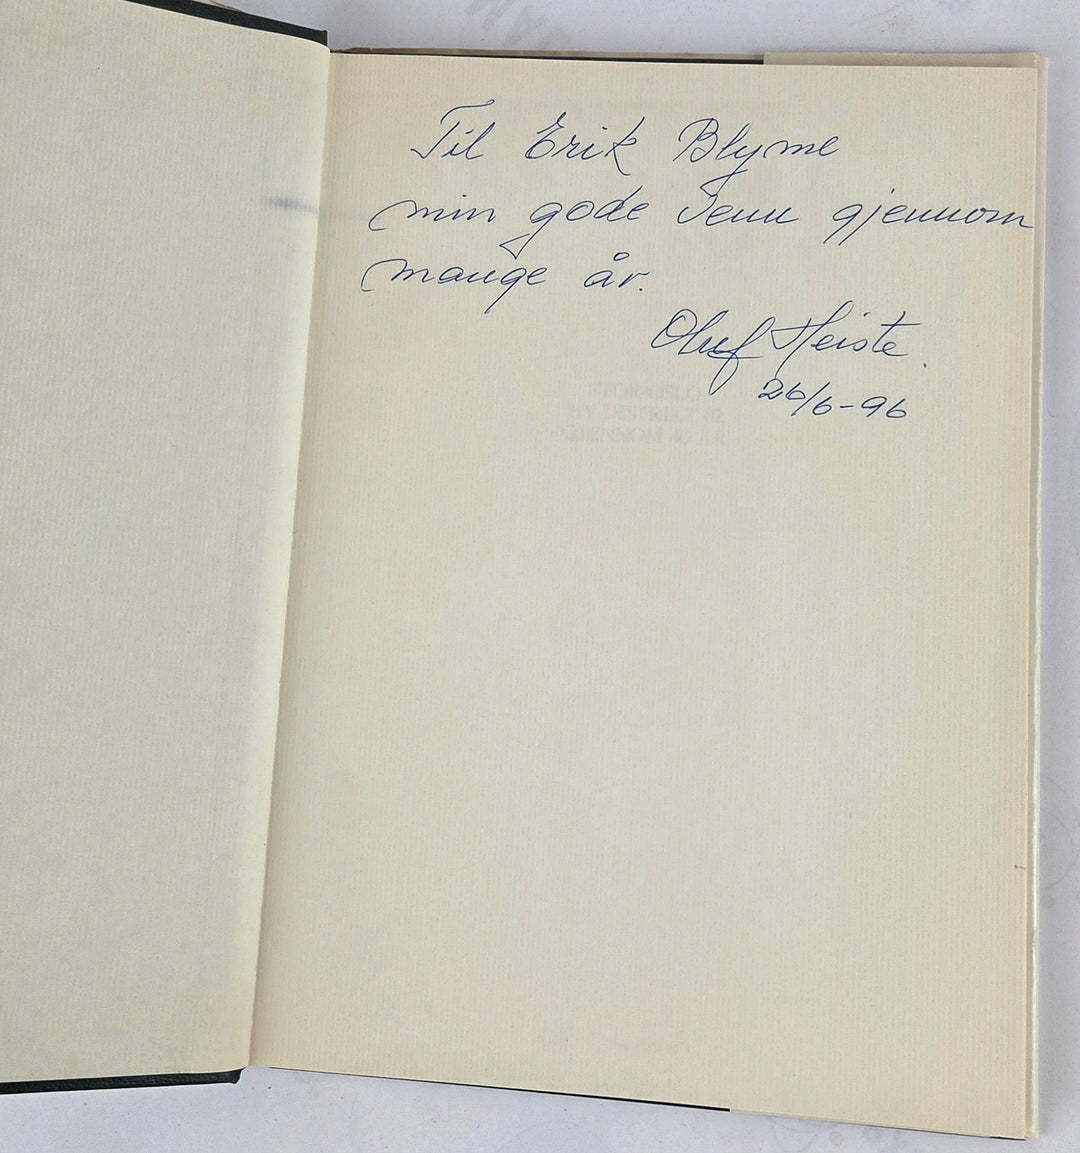 Til Erik Blyme
min gode venn gjennom
mange år.
Oluf Heiste.
26/6-96
GJENNOM 40 ÅR